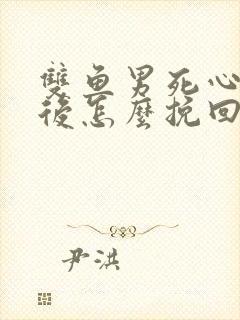 雙魚男死心
後怎麼挽回
尹洪